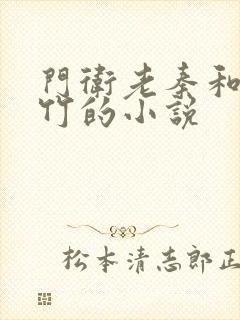 門衛老秦和
竹的小說
松本清志郎正